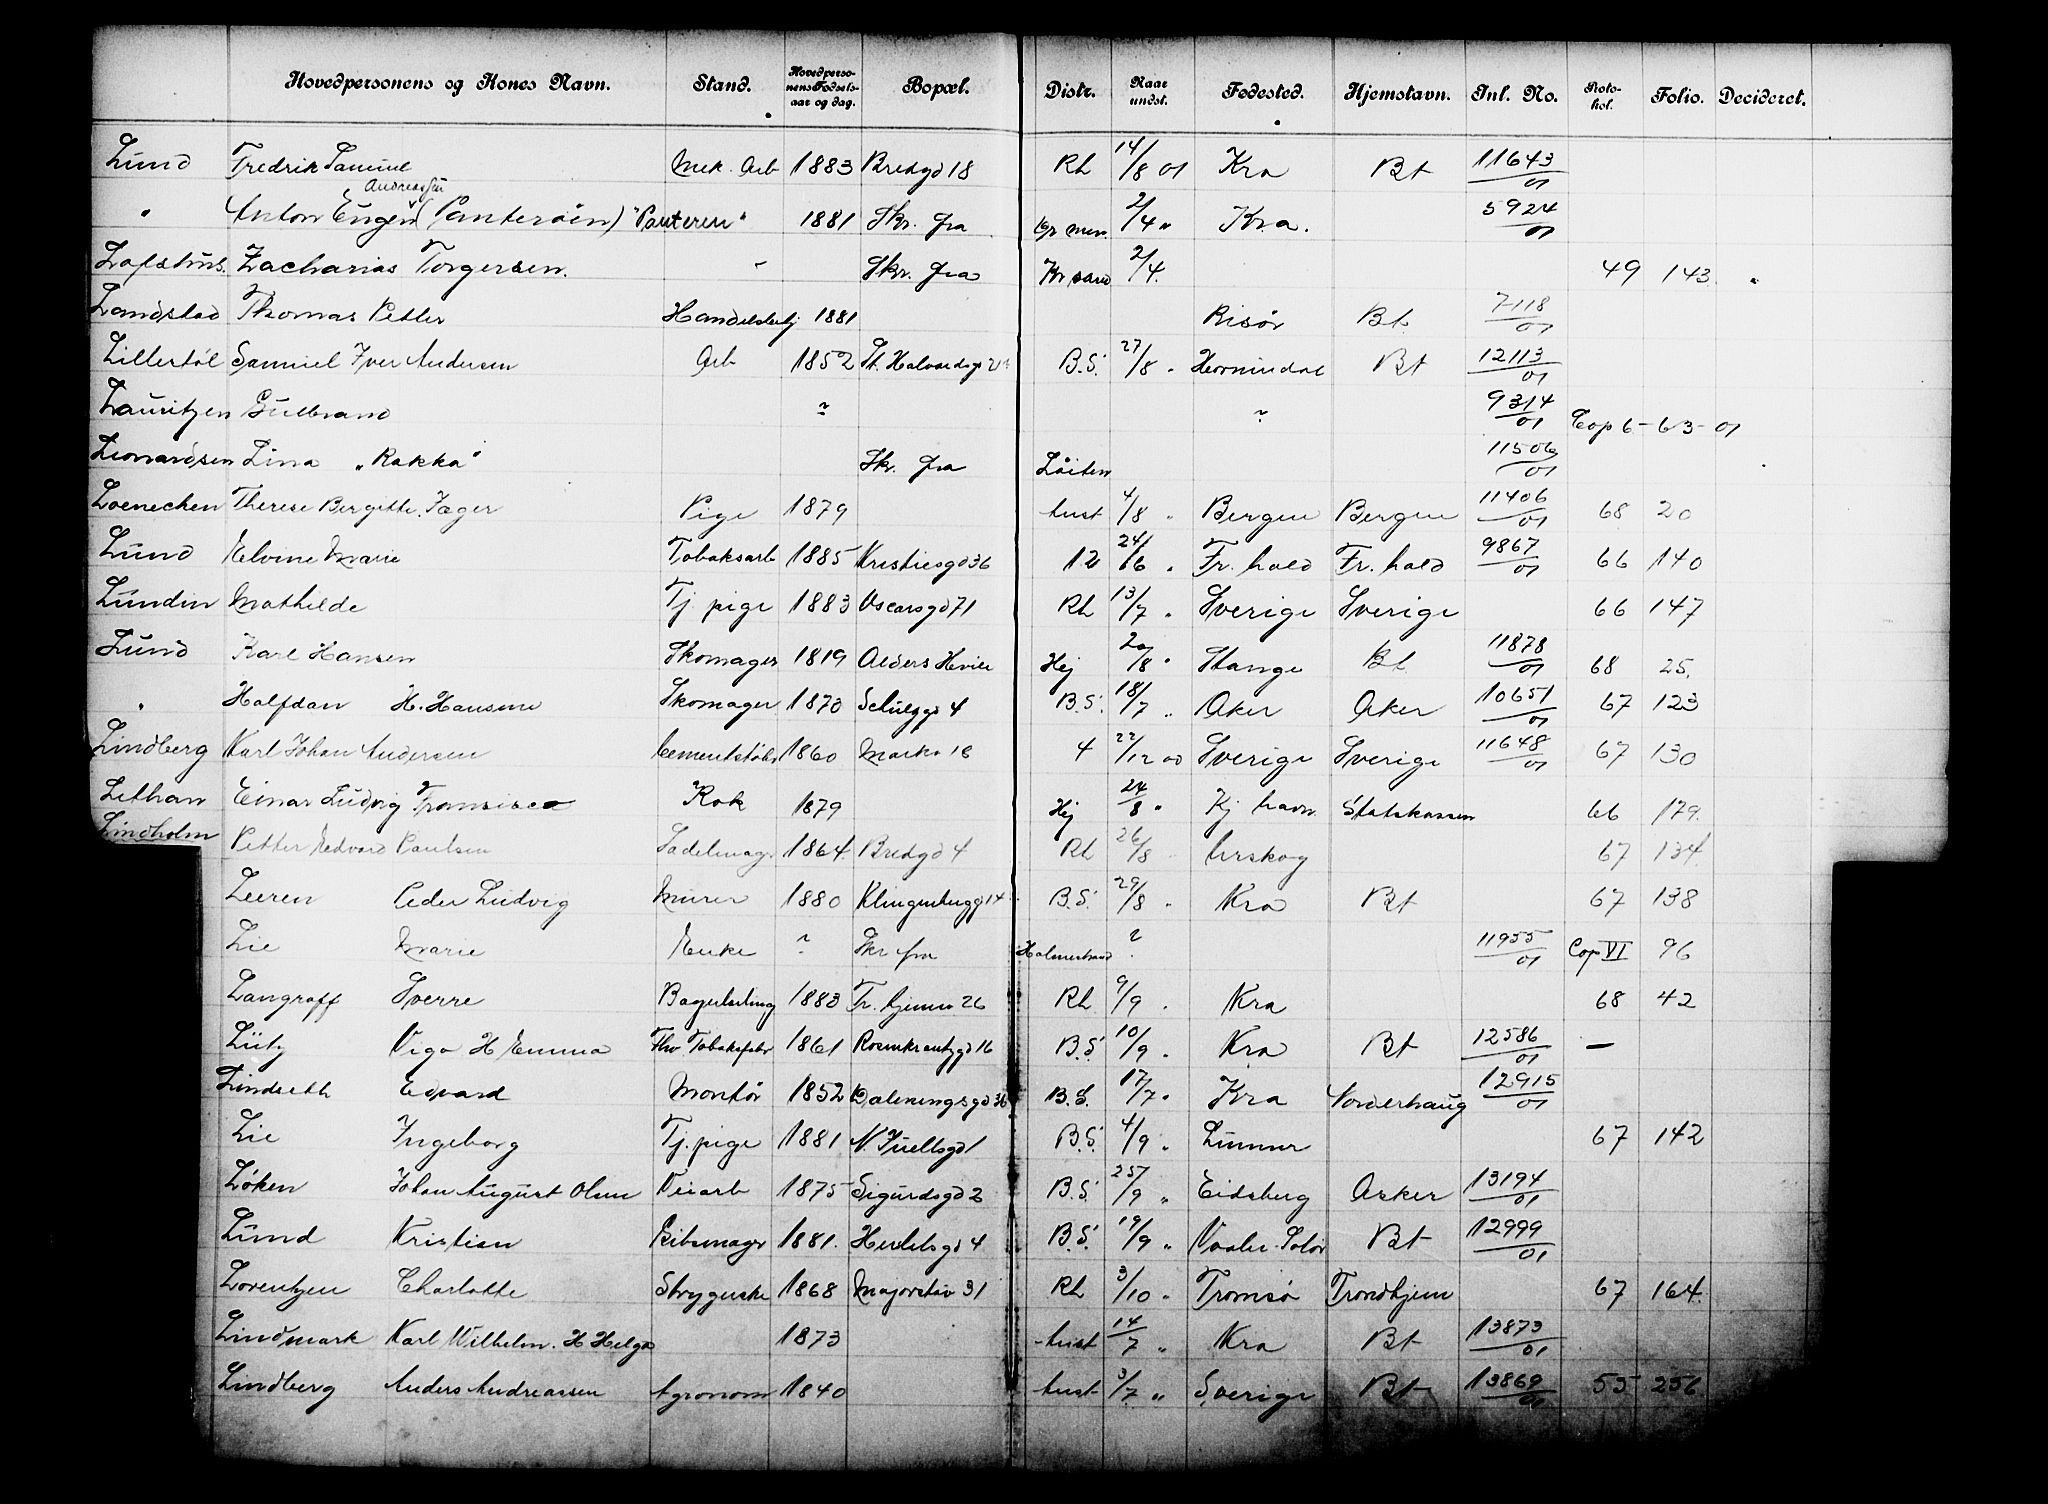 Hovedpersonens og Kones Navn. Stand. Hovedpersonens Fødselsaar og dag. Bopæl. Distr. Naar undst. Fødested. Hjemstavn. Inl. No. Protokol. Folio. Decideret.
Lund Fredrik Samuel Mek. Arb 1883 Bredgd 18 Rh 14/8 01 Kra Bt 11643/01
Andreassen
" Anton Eugen (Panterøien) "Panteren" 1881 Skr. fra 2/4 " Kra. 5924/01
Lofsthus. Zacharias Torgersen. Skr. fra Kr sand 2/4. 49 143. "
Landstad Thomas Petter 1881 Risør Bt. 7118/01
Lillertöl Samuel Iver Andersen Arb 1852 St. Halvardsgd B.S. 27/8 " Hornindal Bt 12113/01
Lauritzen Gulbrand ? ? 9314/01 Cop 6-63-01
Leonardsen Lina "Rakka" Skr. fra Löiten 11506/01
Loenechen Therese Bergitte. Jæger Pige 1879 4/8 " Bergen Bergen 11406/01 68 20
Lund Elvine Marie Tobaksarb 1885 Kristiesgd 36 12 24/6 " Fr. hald Fr. hald 9867/01 66 140
Lundin Mathilde Tj. pige 1883 Oscarsgd 71 Rh 13/7 " Sverige Sverige 66 147
Lund Karl Hansen Skomager 1819 Alders Hvile Hej 20/8 " Stange Bt. 11878/01 68 25.
" Halfdan H. Hansine Skomager 1870 Schulzgd 4 B.S. 18/7 " Aker Aker 10651/01 67 123
Lindberg Karl Johan Andersen Cementstøber 1860 4 22/12 00 Sverige Sverige 11648/01 67 130
Lethan Einar Ludvig Fransisco Kok 1879 Hej 24/8 " Kj havn Statskassen 66 179.
Lindholm Petter Edvard Paulsen Sadelmagr 1864. Bredgd 4 Rh 26/8 Urskog 67 134.
Leeren Peder Ludvig Murer 1880 Klingenbergd 14 B.S. 29/8 " Kra Bt 67 138
Lie Marie Enke ? Skr fra Holmestrand ? 11955/01 Cop VI 96
Langraff Sverre 1883 Tr. hjemsv 26 Rh 9/9 . Kra 68 42
Lütz Vigo H Emma Fhv Tobaksfabr 1861 Rosenkrantzgd 16 B.S. 10/9 " Kra Bt 12586/01 —
Lindseth Edvard Montör 1852 Dælenengsgd 36 B.S. 17/7 " Kra Norderhaug 12915/01
Lie Ingeborg Tj. pige 1881 N. Juellsgd 1 B.S. 4/9 " Lunner 67 142
Løken Johan August Olsen Veiarb 1875 Sigurdsgd 2 B.S. 25/9 " Eidsberg Asker 13194/01
Lund Kristian Gibsmagr 1881. Herslebsgd 4 B.S. 19/9 " Vaaler. Solør Bt 12999/01
Lorentzen Charlotte Strygerske 1868 Majorstuv 31 Rh 3/10 " Tromsø Trondhjem 67 164.
Lindmark Karl Wilhelm. H Helga 1873 14/7 " Kra Bt 13873/01
Lindberg Anders Andreassen Agronom 1840 3/7 " Sverige Bt 13869/01 55 256